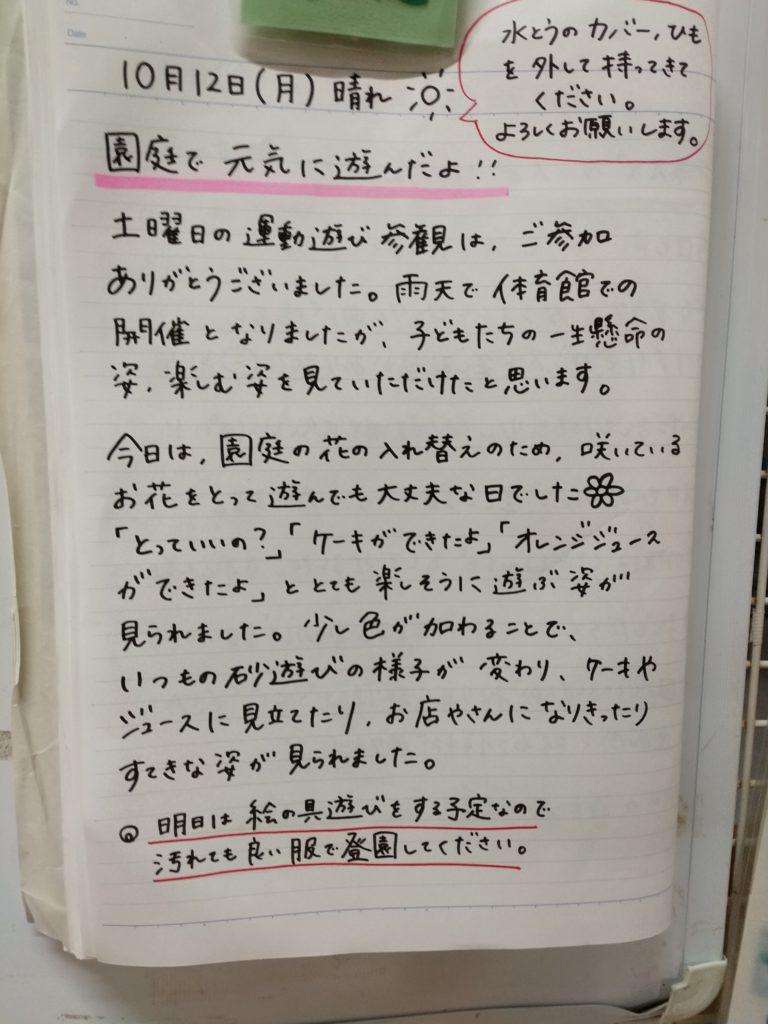 No.
Date
水とうのカバー,ひも
を外して持ってきて
ください。
よろしくお願いします。
10月12日(月) 晴れ
園庭で 元気に遊んだよ!!
土曜日の運動遊び参観は、ご参加
ありがとうございました。雨天で体育館での
開催となりましたが、子どもたちの一生懸命の
姿、楽しむ姿を見ていただけたと思います。
今日は、園庭の花の入れ替えのため、咲いている
お花をとって遊んでも大丈夫な日でした
「とっていいの?」「ケーキができたよ」「オレンジジュース
ができたよ」ととても楽しそうに遊ぶ姿が
見られました。少し色が加わることで、
いつもの砂遊びの様子が変わり、ケーキや
ジュースに見立てたり、お店やさんになりきったり
すてきな姿が見られました。
明日は絵の具遊びをする予定なので
汚れても良い服で登園してください。